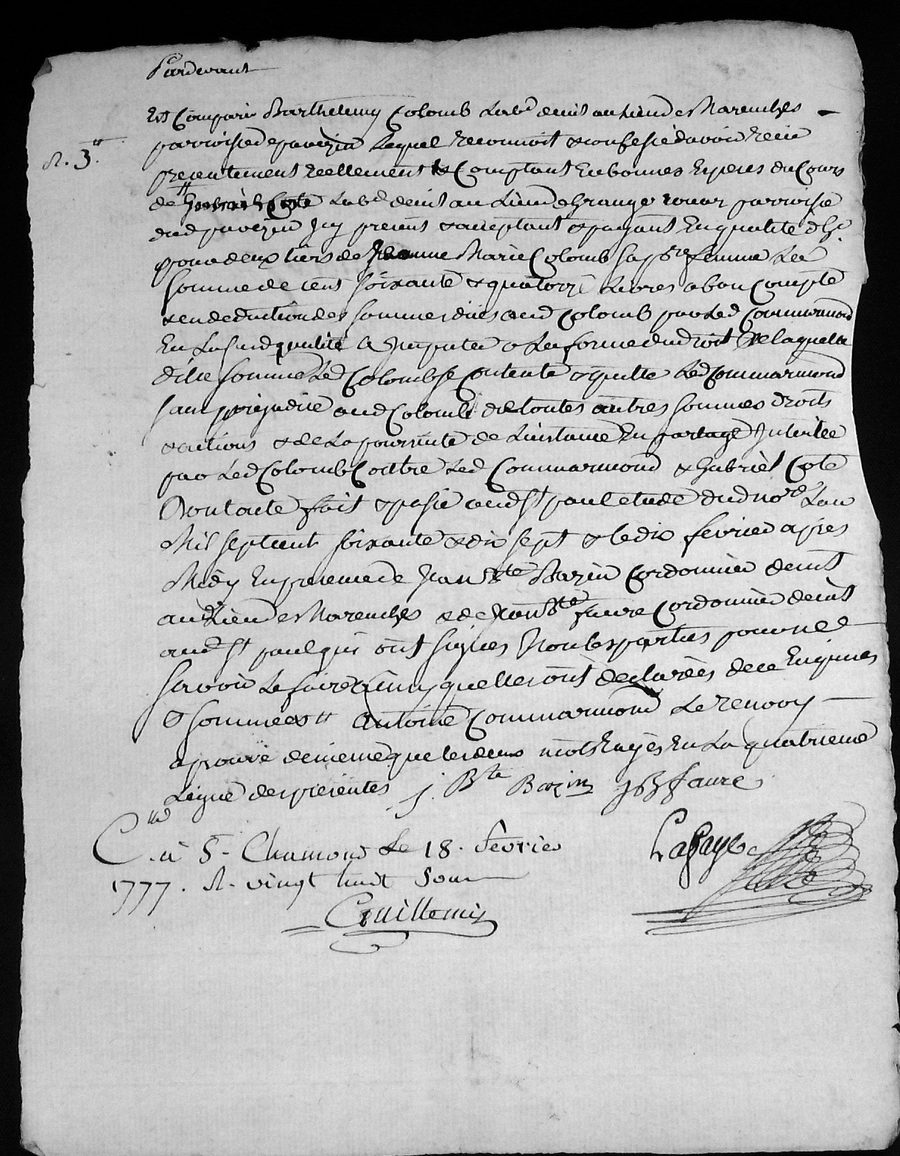 Pardevant
Est Comparu Barthelemy Colomb Labr demt au lieu de Marenches
R. 3tt
parroisse de pavezin Lequel reconnoit & confesse davoir recu
presentement reellement & Comptant En bonnes Especes du Cours
de Labr demt au Lieu de Grange rouar parroisse
dud pavezin Icy present & acceptant & payant En qualité
pour deux tiers de Jeanne Marie Colomb sa femme La
somme de cent soixante & quatorze Livres a bon Compte
& en deduction des sommes dües aud Colomb par Led Commarmond
En La susd qualité a Imputer a La forme du droit De laquelle
dite somme Led Colomb se Contente & quitte Led Commarmond
sans prejudice aud Colomb de toutes autres sommes droits
& actions & de La poursuite de Linstance En partage Intentée
par Led Colomb Contre Led Commarmond & Gabriel Cote
Dont acte fait & passé aud St paul etude dud nore Lan
Mil sept cent soixante & dix sept & le dix fevrier apres
Midy En presence de Jean Bte Bazin Cordonnier demt
aud Lieu de Marenches & de Jean Bte faure Cordonnier demt
aud St paul qui ont signés Non les parties pour ne
savoir Le faire ainsy quelles ont declarées de ce Enquises
& sommées tt Antoine Commarmond Le renvoy
aprouvé de meme que les deux mots Rayés En La quatrieme
Ligne des presentes J. Bte Bazin JB faure
Clé a St Chamond Le 18. fevrier Lafaye
1777. R. vingt huit sous
Guillemin